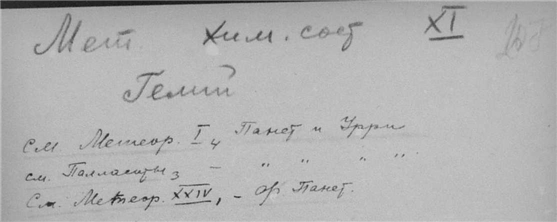 Мет. хим. сост XI
Гелий
см. Метеор. I₄ Панет и Урри
см. Палласиты₃ — " " " "
См. Метеор. XXIV, — Ф Панет.